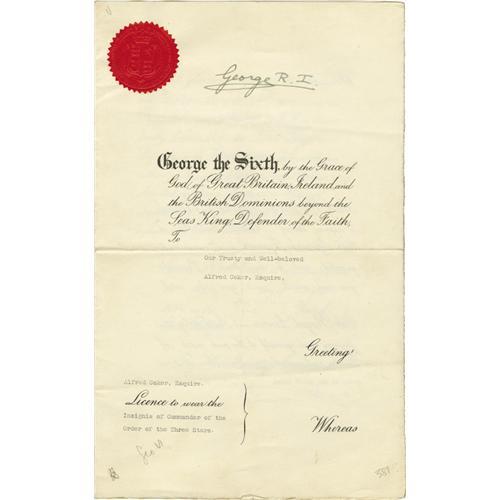 George R. I.
George the Sixth, by the Grace of
God, of Great Britain, Ireland and
the British Dominions beyond the
Seas King, Defender of the Faith,
To
Our Trusty and Well-beloved
Alfred Oaker, Esquire.
Greeting!
Alfred Oaker, Esquire.
Licence to wear the
Insignia of Commander of the
Order of the Three Stars.
Whereas
Geo VI
387